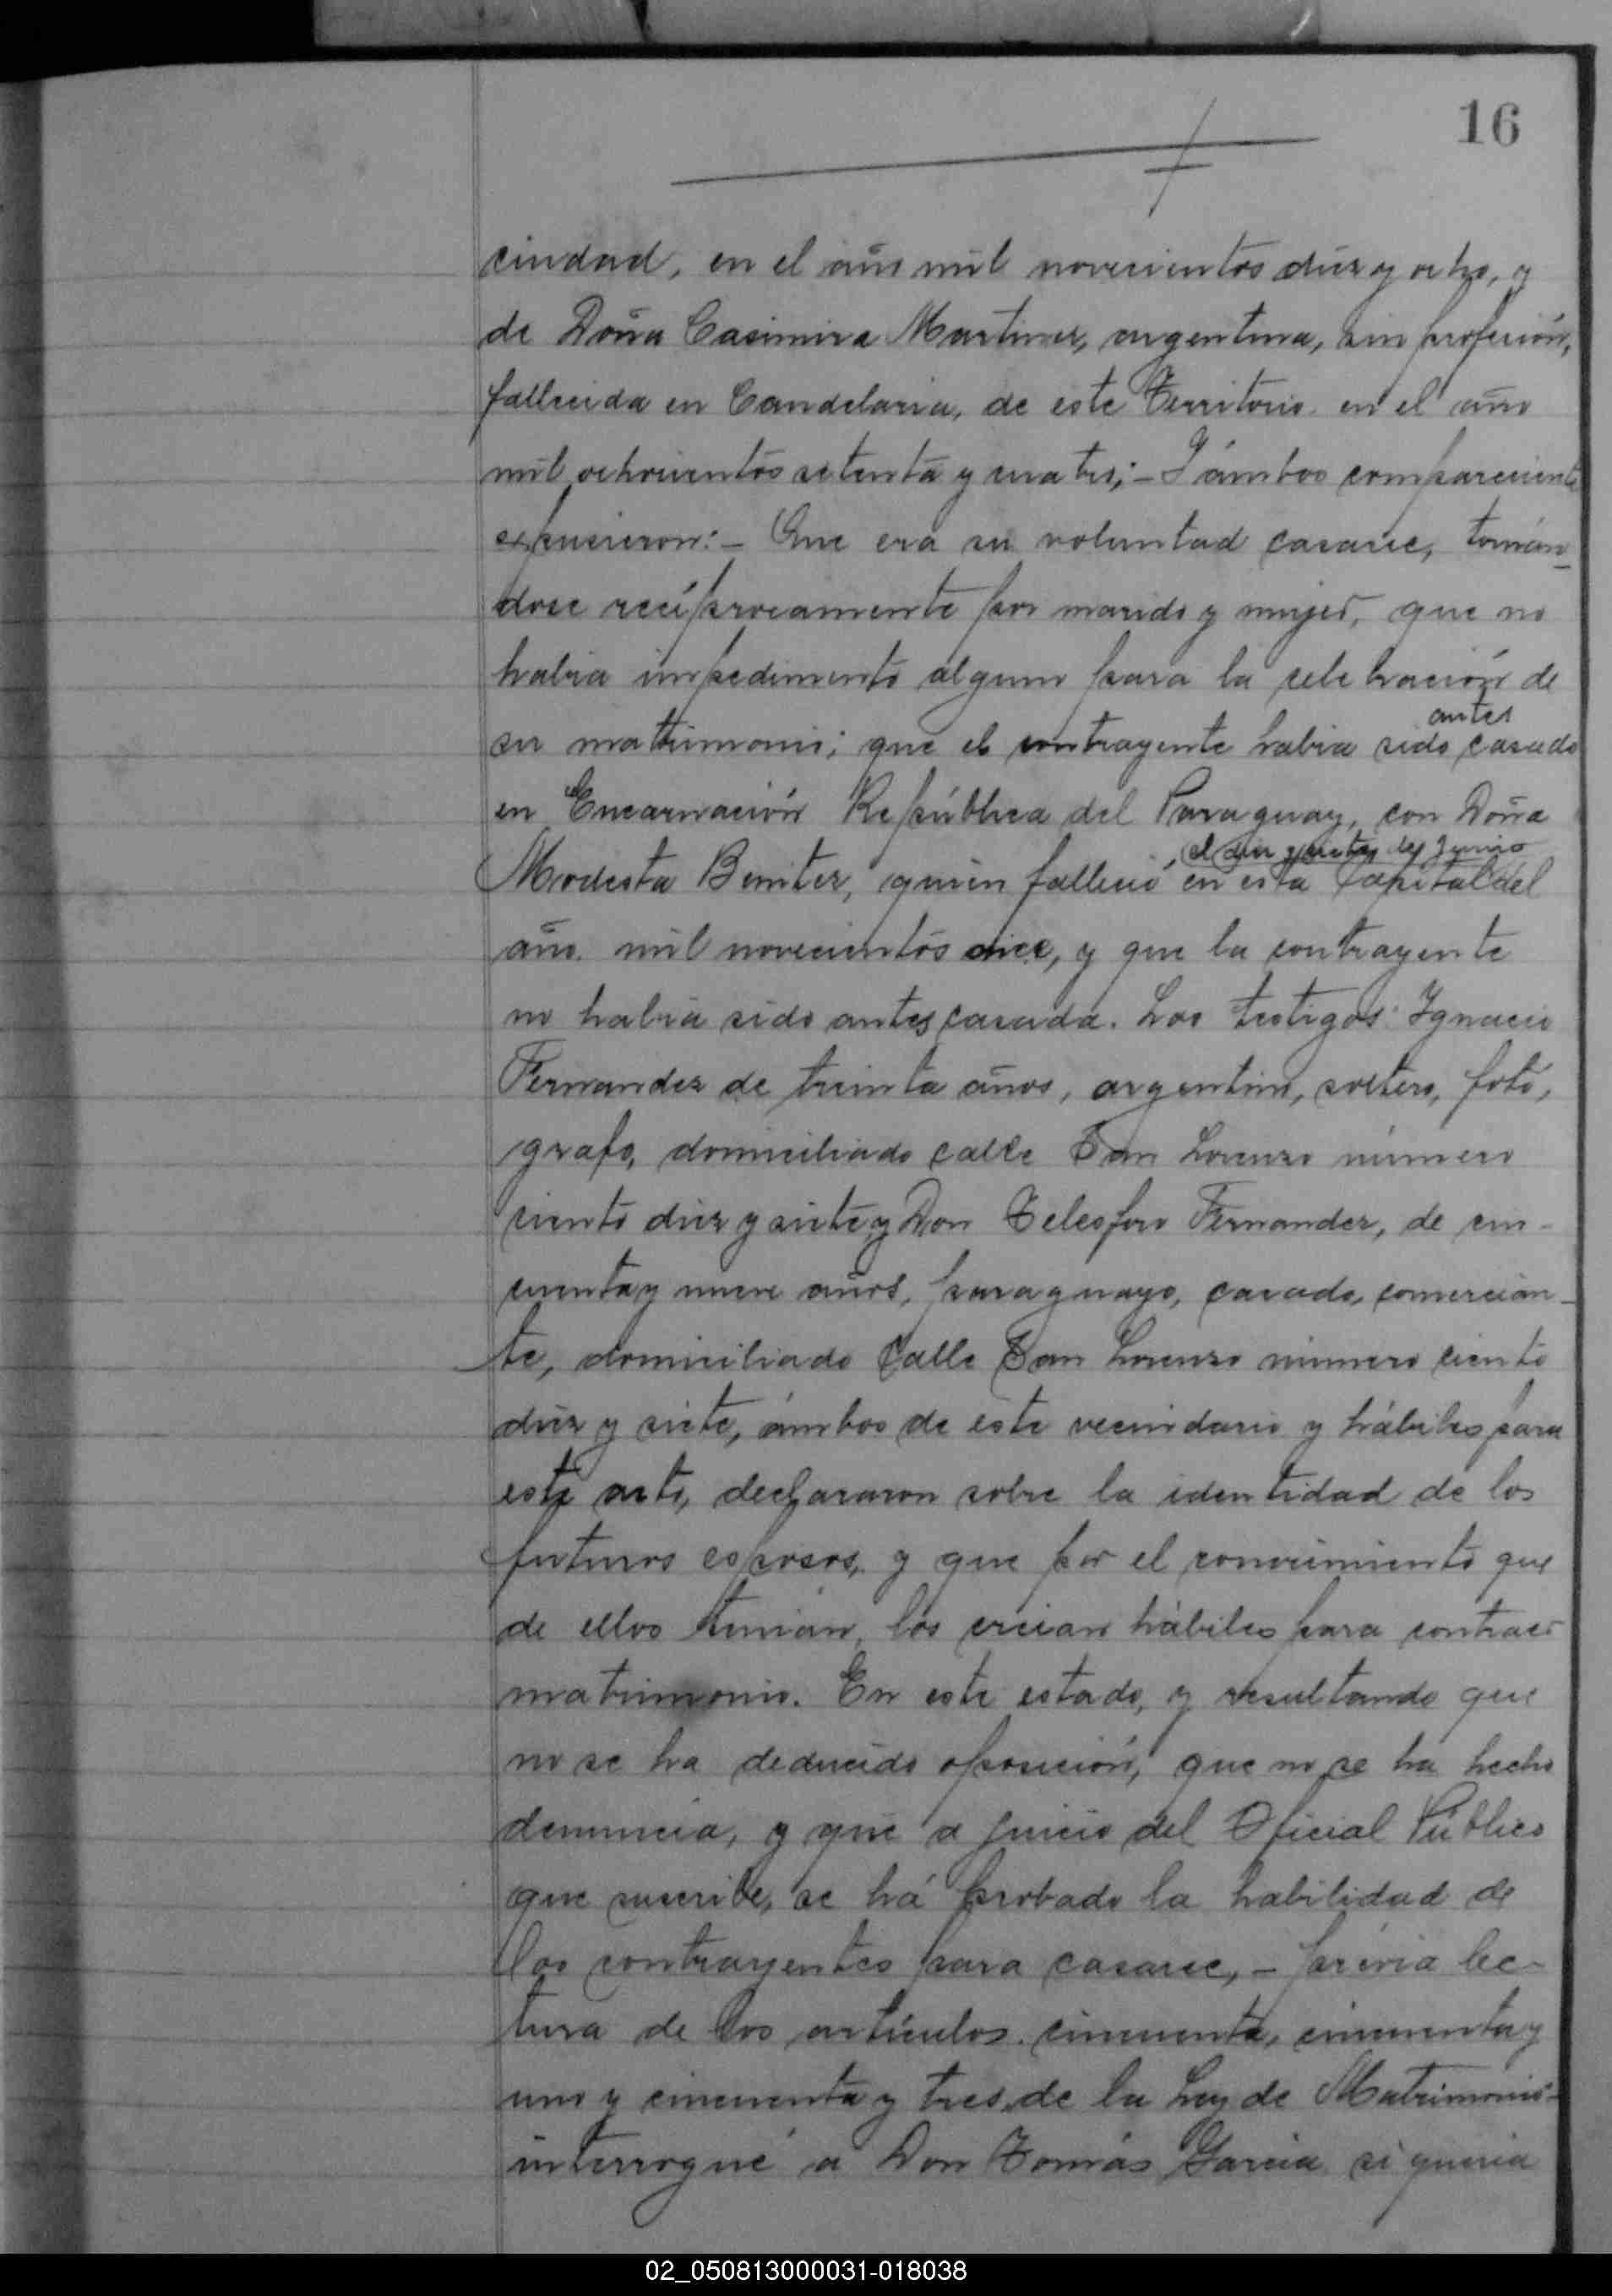 16
ciudad, en el año mil novecientos diez y ocho, y
de Doña Casimira Martinez, argentina, sin profesión,
fallecida en Candelaria, de este Territorio en el año
mil ochocientos setenta y cuatro; - I ámbos comparecientes
expusieron: - Que era su voluntad casarse, tomán-
dose recíprocamente por marido y mujer, que no
habia impedimento alguno para la celebración de
antes
su matrimonio; que el contrayente habia sido casado
en Encarnación República del Paraguay, con Doña
el diez y siete de Junio
Modesta Benitez, quien falleció en esta Capital del
año mil novecientos once, y que la contrayente
no habia sido antes casada. Los testigos Ignacio
Fernandez de treinta años, argentino, soltero, fotó,
grafo, domiciliado calle San Lorenzo número
ciento diez y siete y Don Telesforo Fernandez, de cin-
cuenta y nueve años, paraguayo, casado, comercian-
te, domiciliado Calle San Lorenzo número ciento
diez y siete, ámbos de este vecindario y hábiles para
este acto, declararon sobre la identidad de los
futuros esposos, y que por el conocimiento que
de ellos tenian, los creian hábiles para contraer
matrimonio. En este estado, y resultando que
no se ha deducido oposición, que no se ha hecho
denuncia, y que a juicio del Oficial Público
que suscribe, se há probado la habilidad de
los contrayentes para casarse, - prévia lec-
tura de los artículos cincuenta, cincuenta y
uno y cincuenta y tres de la Ley de Matrimonio-
interrogué a Don Tomás Garcia si queria
02_050813000031-018038